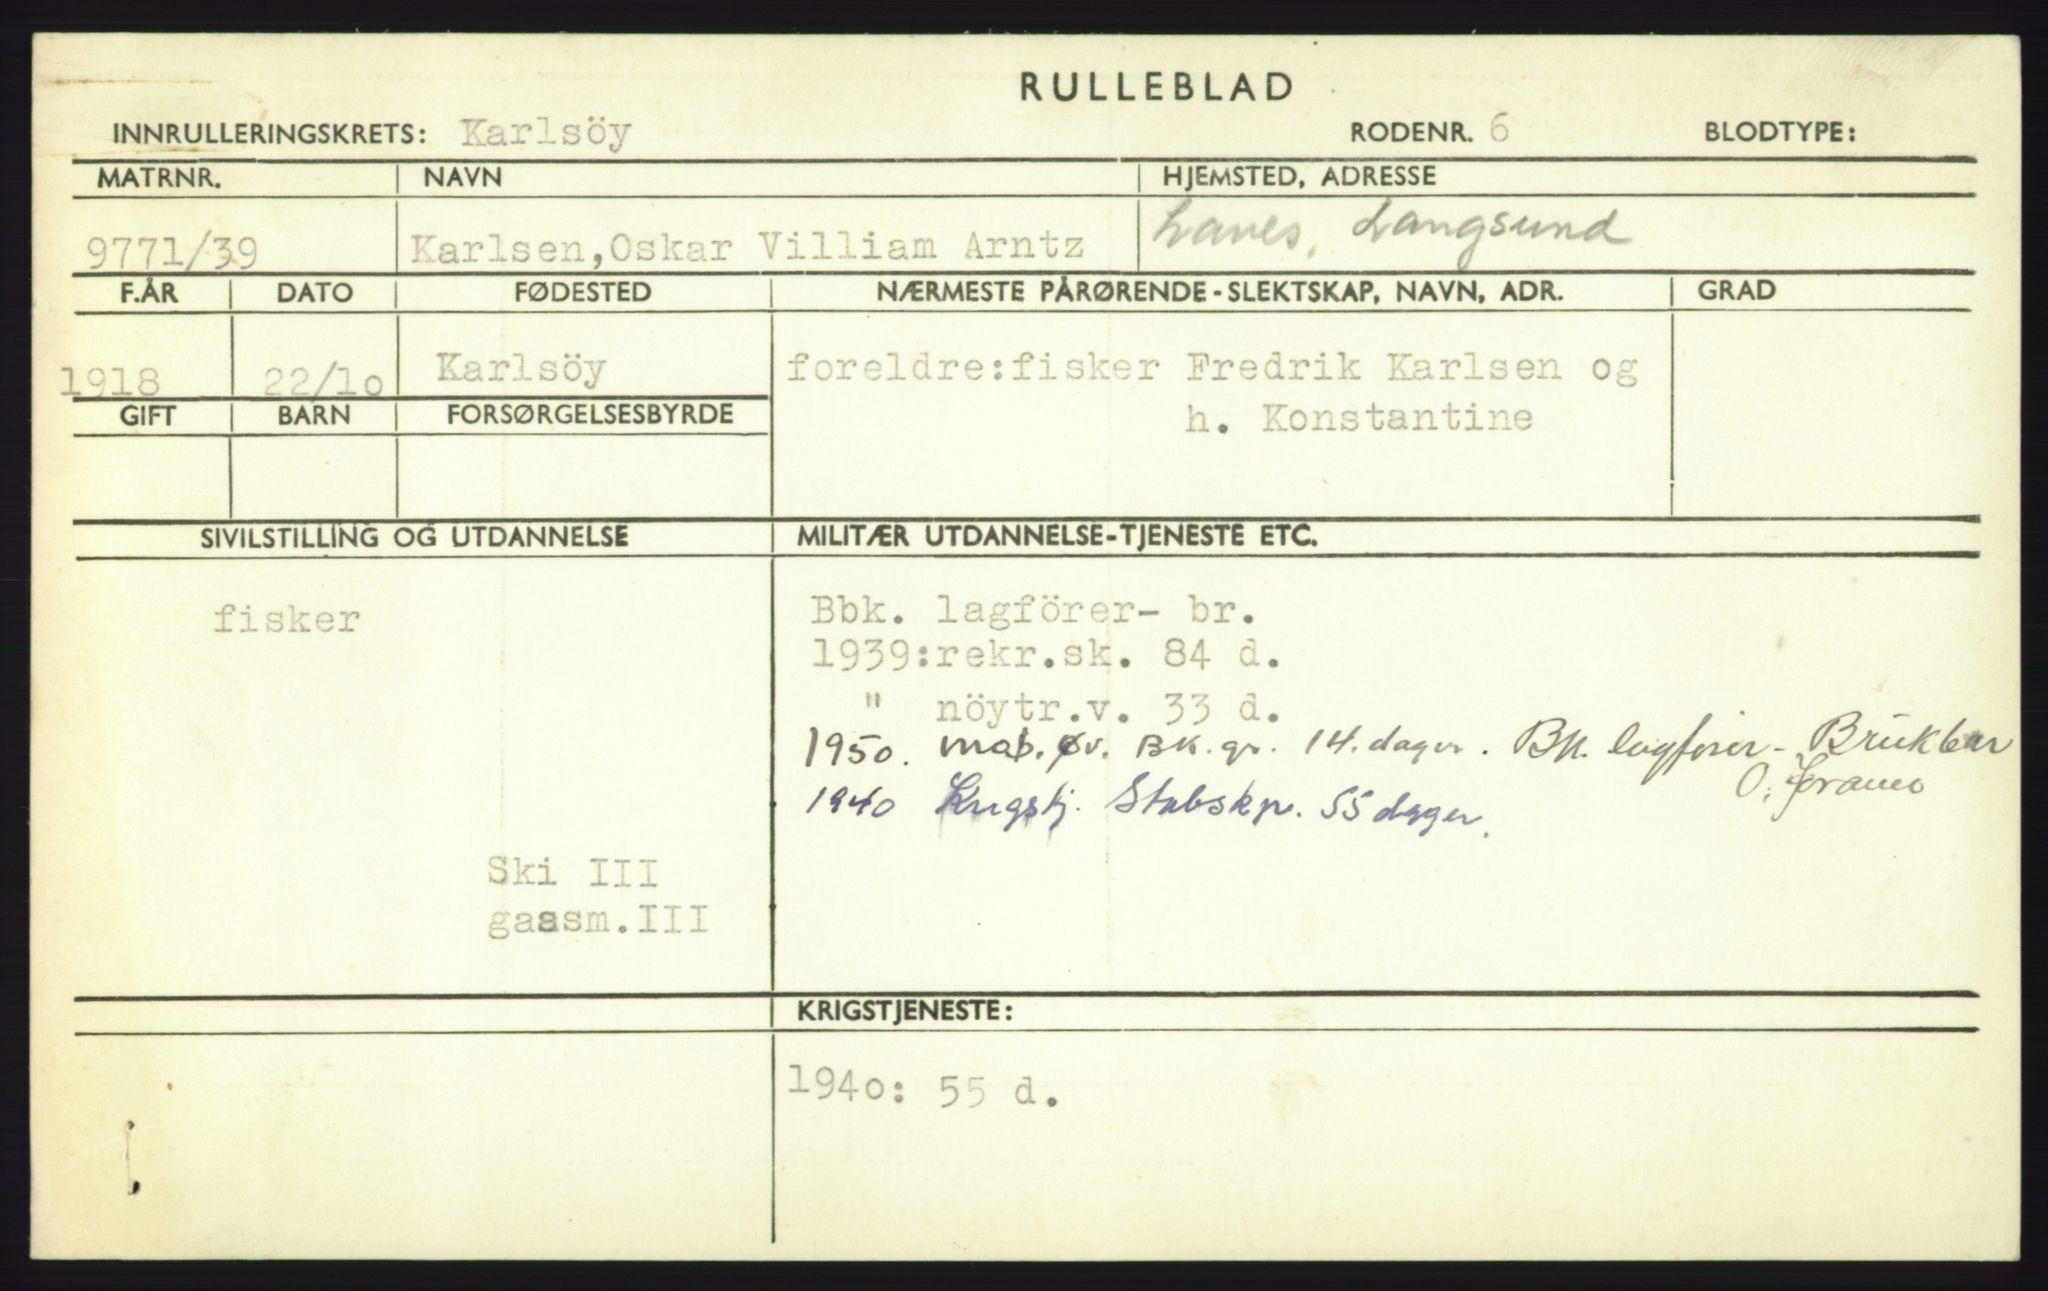 RULLEBLAD
INNRULLERINGSKRETS: Karlsöy RODENR. 6 BLODTYPE:
MATRNR. NAVN HJEMSTED, ADRESSE
9771/39 Karlsen,Oskar Villiam Arntz Lanes, Langsund
F.ÅR DATO FØDESTED NÆRMESTE PÅRØRENDE-SLEKTSKAP, NAVN, ADR. GRAD
1918 22/1o Karlsöy foreldre:fisker Fredrik Karlsen og
h. Konstantine
GIFT BARN FORSØRGELSESBYRDE
SIVILSTILLING OG UTDANNELSE MILITÆR UTDANNELSE-TJENESTE ETC.
fisker Bbk. lagförer- br.
1939:rekr.sk. 84 d.
" nöytr.v. 33 d.
1950. mob. øv. BK.gr. 14. dager. BK. lagfører - Brukbar
O.
1940 Krigstj. Stabskp. 55 dager.
Ski III
gassm.III
KRIGSTJENESTE:
194o: 55 d.